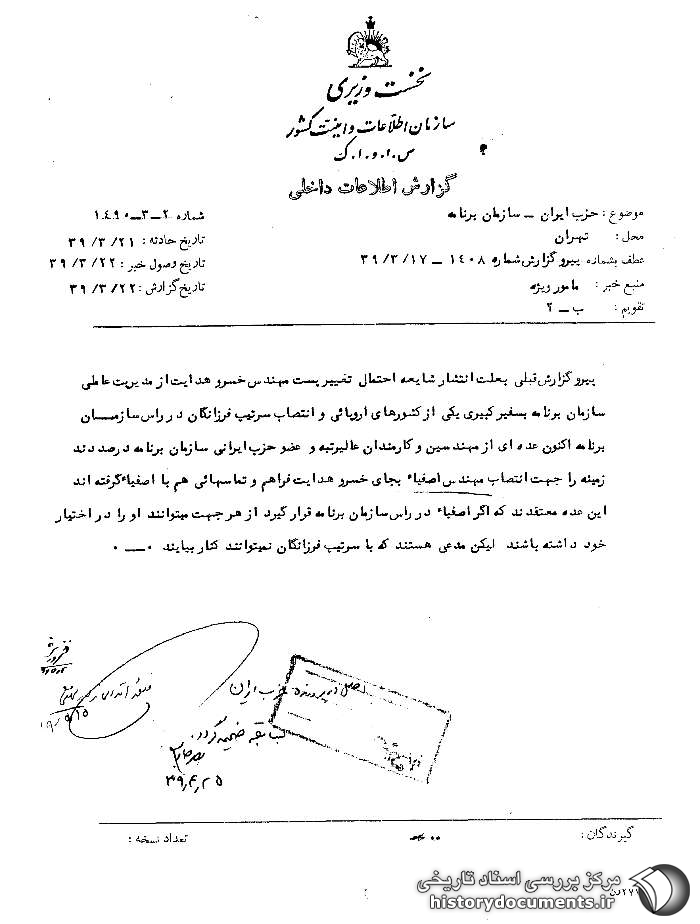 نخست وزیری
سازمان اطلاعات و امنیت کشور
س.ا.و.ا.ک
گزارش اطلاعات داخلی
موضوع : حزب ایران ــ سازمان برنامه
شماره ۲ــ۳ــ۱۴۹۰
محل : تهران
تاریخ حادثه : ۳۹/۳/۲۱
عطف بشماره پیرو گزارش شماره ۱۴۰۸ ــ ۳۹/۳/۱۷
تاریخ وصول خبر : ۳۹/۳/۲۲
منبع خبر : مامور ویژه
تاریخ گزارش : ۳۹/۳/۲۲
تقویم : ب ــ ۲
پیرو گزارش قبلی بعلت انتشار شایعه احتمال تغییر پست مهندس خسرو هدایت از مدیریت عاملی
سازمان برنامه بسفیر کبیری یکی از کشورهای اروپائی و انتصاب سرتیپ فرزانگان در راس سازمان
برنامه اکنون عده ای از مهندسین و کارمندان عالیرتبه و عضو حزب ایرانی سازمان برنامه درصددند
زمینه را جهت انتصاب مهندس اصفیاء بجای خسرو هدایت فراهم و تماسهائی هم با اصفیاء گرفته اند
این عده معتقدند که اگر اصفیاء در راس سازمان برنامه قرار گیرد از هر جهت میتوانند او را در اختیار
خود داشته باشند لیکن مدعی هستند که با سرتیپ فرزانگان نمیتوانند کنار بیایند ۰ــ۰
اصل در پرونده حزب ایران
ضمیمه گردد.
۳۹،۴،۲۵
گیرندگان :
تعداد نسخه :
مرکز بررسی اسناد تاریخی
historydocuments.ir